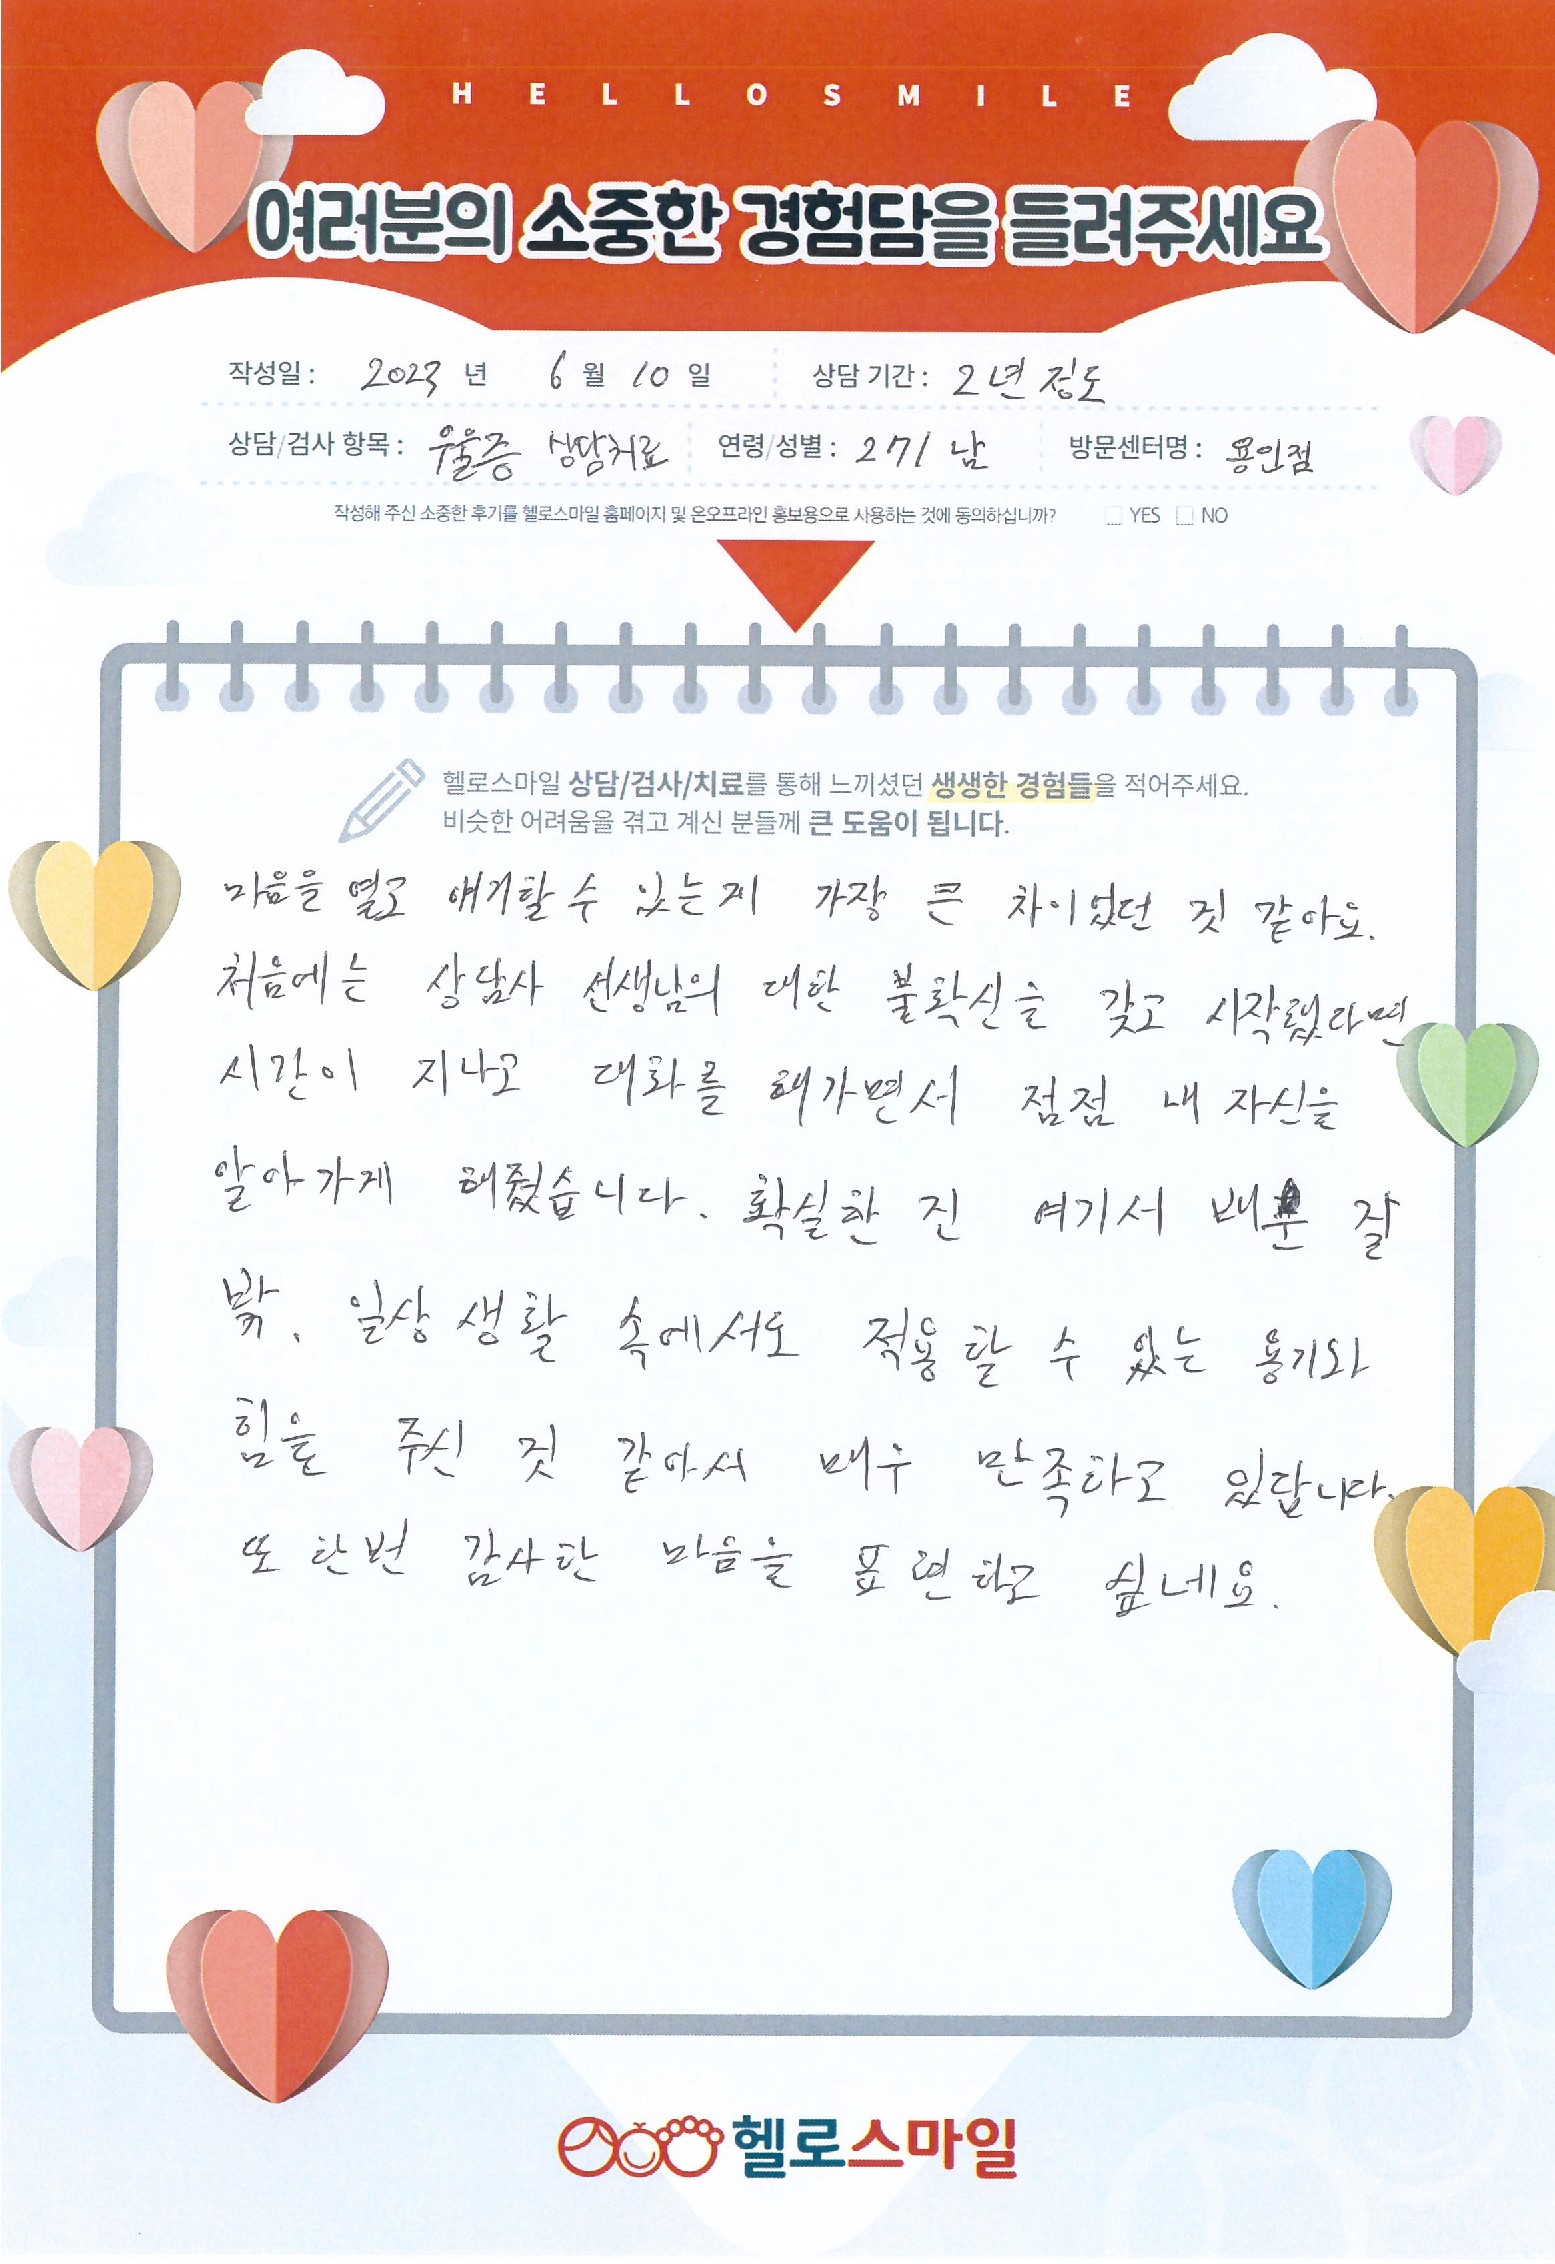 HELLOSMILE
여러분의 소중한 경험담을 들려주세요
작성일 : 2023 년 6 월 10 일 상담 기간 : 2년 정도
상담/검사 항목 : 우울증 상담치료 연령/성별 : 27/ 남 방문센터명 : 용인점
작성해 주신 소중한 후기를 헬로스마일 홈페이지 및 온오프라인 홍보용으로 사용하는 것에 동의하십니까? YES NO
헬로스마일 상담/검사/치료를 통해 느끼셨던 생생한 경험들을 적어주세요.
비슷한 어려움을 겪고 계신 분들께 큰 도움이 됩니다.
마음을 열고 얘기할 수 있는지 가장 큰 차이었던 것 같아요.
처음에는 상담사 선생님의 대한 불확신을 갖고 시작했다면
시간이 지나고 대화를 해가면서 점점 내 자신을
알아가게 해줬습니다. 확실한 건 여기서 배운 걸
밖, 일상 생활 속에서도 적용할 수 있는 용기와
힘을 주신 것 같아서 매우 만족하고 있답니다.
또 한번 감사한 마음을 표현하고 싶네요.
헬로스마일